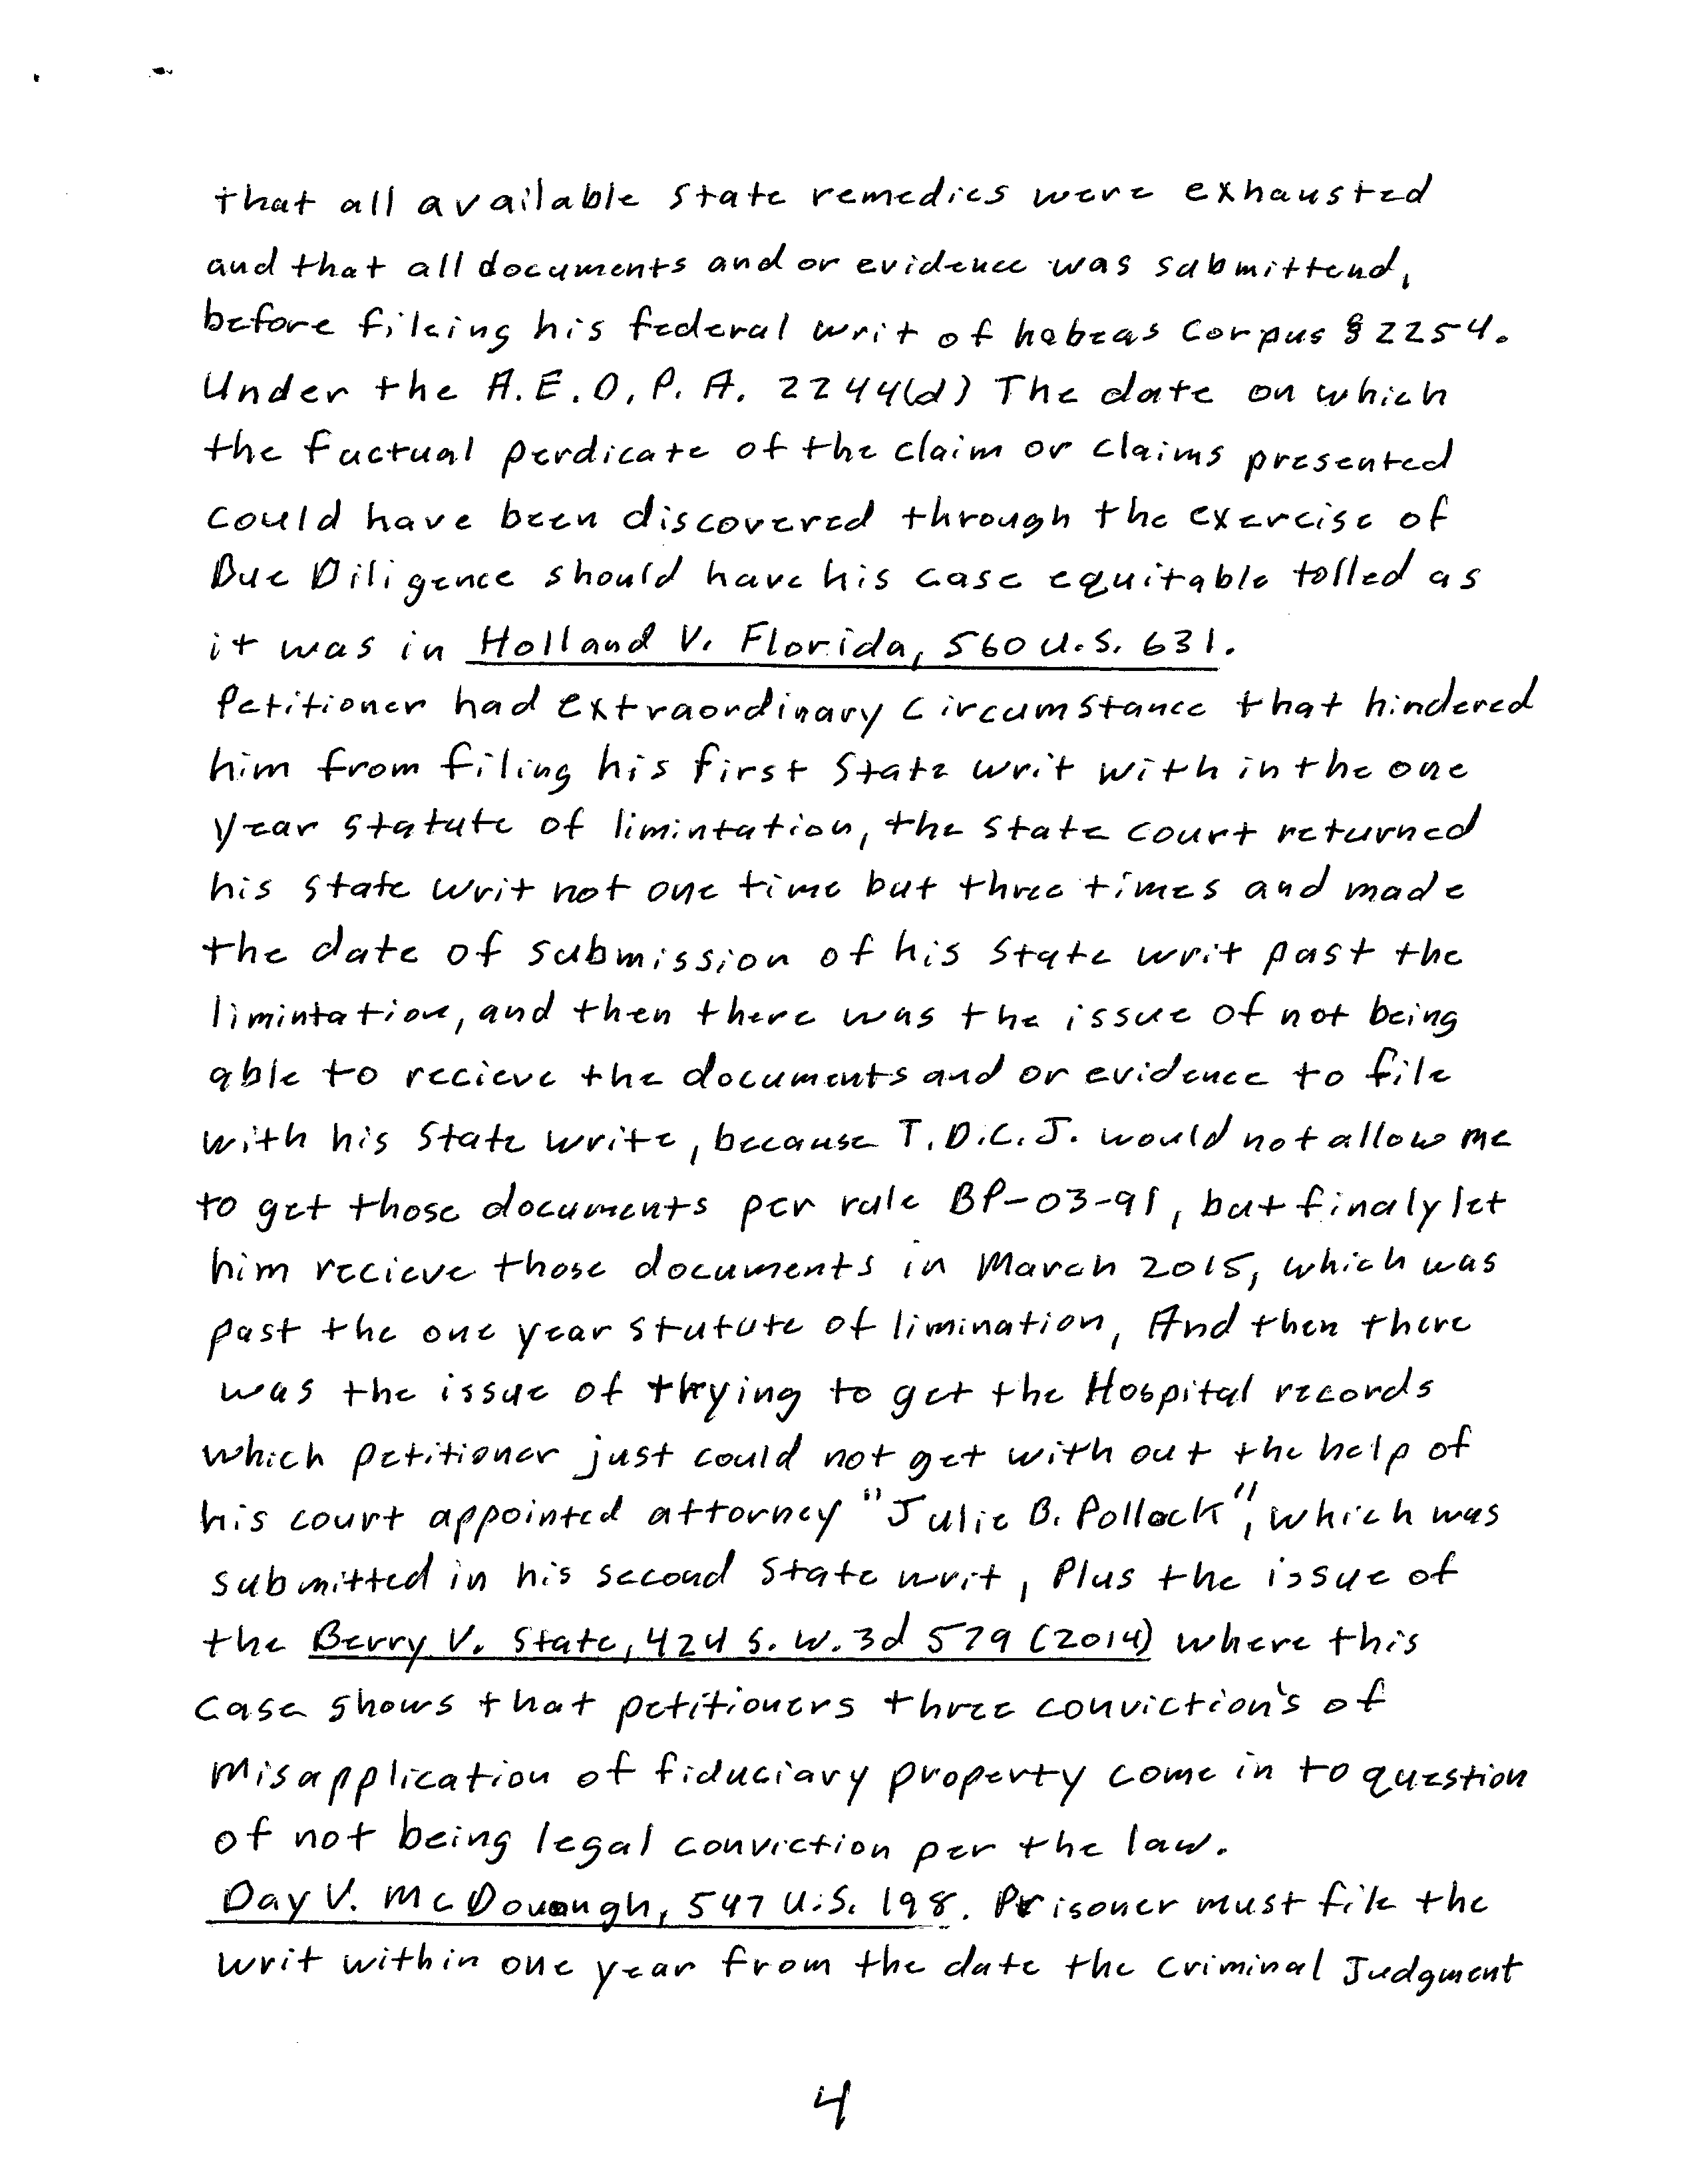 that all available state remedies were exhausted
and that all documents and or evidence was submittend,
before fileing his federal writ of habeas Corpus § 2254.
Under the A.E.O.P.A. 2244(d) The date on which
the factual perdicate of the claim or claims presented
could have been discovered through the exercise of
Due Diligence should have his case equitable tolled as
it was in Holland V. Florida, 560 U.S. 631.
Petitioner had extraordinary Circumstance that hindered
him from filing his first State writ with in the one
year statute of limintation, the state court returned
his state writ not one time but three times and made
the date of submission of his state writ past the
limintation, and then there was the issue of not being
able to recieve the documents and or evidence to file
with his State write, because T.D.C.J. would not allow me
to get those documents per rule BP-03-91, but finaly let
him recieve those documents in March 2015, which was
past the one year stutute of limination, And then there
was the issue of trying to get the Hospital records
which petitioner just could not get with out the help of
his court appointed attorney "Julie B. Pollock", which was
submitted in his second State writ, Plus the issue of
the Berry V. State, 424 S.W.3d 579 (2014) where this
Case shows that petitioners three conviction's of
Misapplication of fiduciary property come in to question
of not being legal conviction per the law.
Day V. McDonough, 547 U.S. 198. Prisoner must file the
writ within one year from the date the Criminal Judgment
4